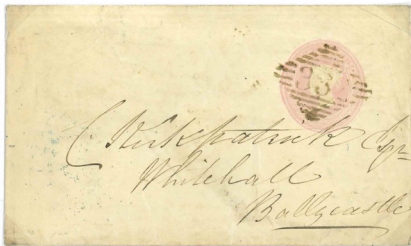 33
C. Kirkpatrick Esqr
Whitehall
Ballycastle